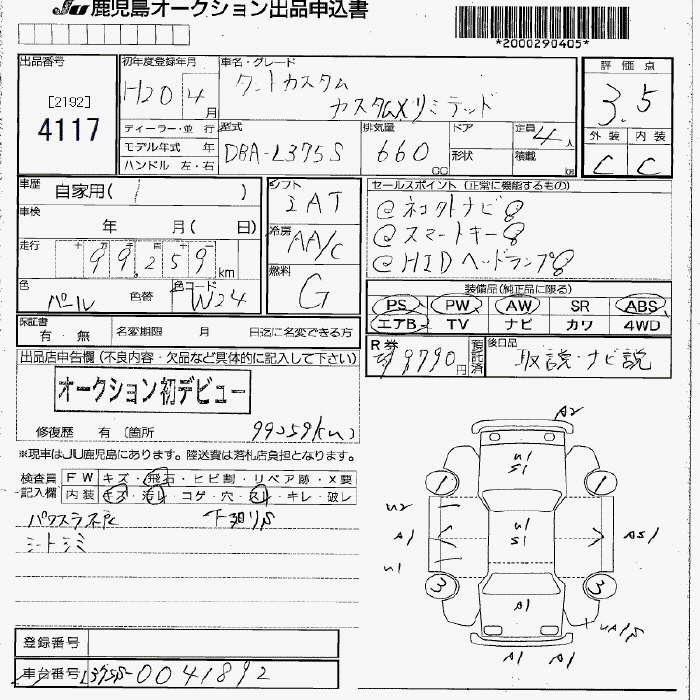 JU 鹿児島オークション出品申込書
*2000290405*
出品番号
[2192]
4117
初年度登録年月
H20 4月
車名・グレード
タントカスタム
カスタムXリミテッド
評価点
3.5
外装 内装
C C
ディーラー・並行
モデル年式 年
ハンドル 左・右
型式
DBA-L375S
排気量
660 CC
ドア
形状
定員 4人
積載 kg
車歴 自家用( )
車検 年 月( 日)
走行 十万千百十一
99,259 km
色 パール 色替
色コード W24
シフト
IAT
冷房
AA/C
燃料
G
セールスポイント (正常に機能するもの)
@ネコクトナビ@
@スマートキー@
@HIDヘッドランプ@
装備品(純正品に限る)
PS PW AW SR ABS
エアB TV ナビ カワ 4WD
保証書 有・無
名変期限 月 日迄に名変できる方
R券
9790円
預託済
後日品
取説・ナビ説
出品店申告欄 (不良内容・欠品など具体的に記入して下さい)
オークション初デビュー
修復歴 有 〔箇所
99259(km)
※現車はJU鹿児島にあります。陸送費は落札店負担となります。
検査員記入欄
FW キズ・飛石・ヒビ割・リペア跡・X要
内装 キズ・汚レ・コゲ・穴・スレ・キレ・破レ
下廻りS
シートシミ
A2
U1
S1
1
1
U2
A1
U1
U1
S1
AS1
3
3
A1
UA1S
A1 A1
登録番号
車台番号 L375S-0041892